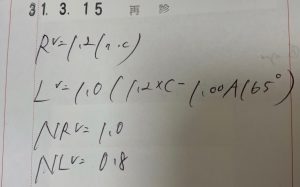 31.3.15 再診
RV=1.2(n.c)
LV=1.0(1.2×C-1.00A165°)
NRV=1.0
NLV=0.8